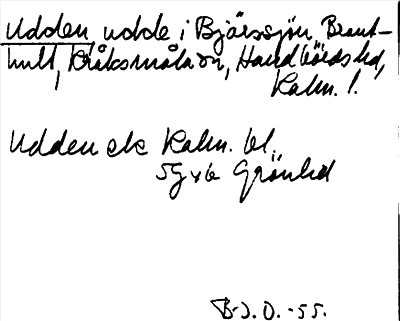 Udden udde i Bjärssjön, Brant-
hult, Kråksmåla sn, Handbörds hd,
Kalm. l.
Udden ek Kalm. bl.
5G v b Grönhd
B-J. O. -55.